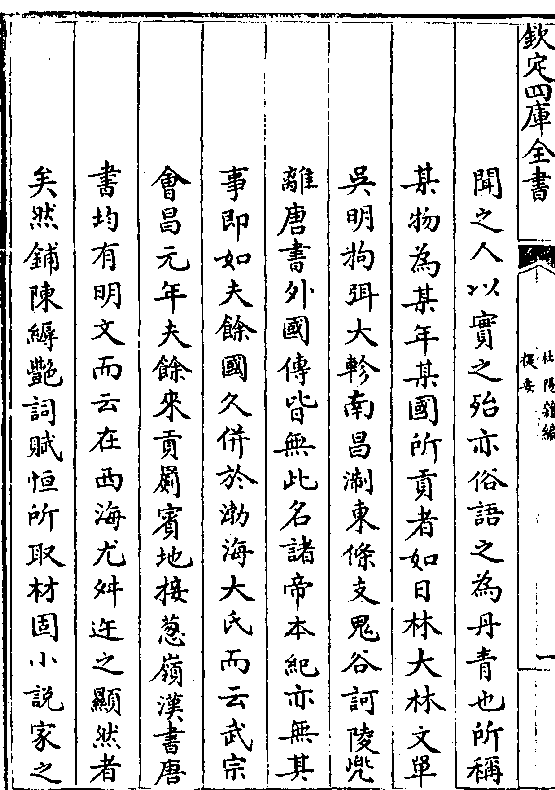 欽定四庫全書
杜陽雜編
提要
聞之人以實之殆亦俗語之為丹青也所稱
某物為某年某國所貢者如日林大林文單
吳明拘弭大軫南昌淛東條支鬼谷訶陵兜
離唐書外國傳皆無此名諸帝本紀亦無其
事即如夫餘國久併於渤海大氏而云武宗
會昌元年夫餘來貢罽賓地接葱嶺漢書唐
書均有明文而云在西海尤舛迕之顯然者
矣然鋪陳縟艷詞賦恒所取材固小說家之